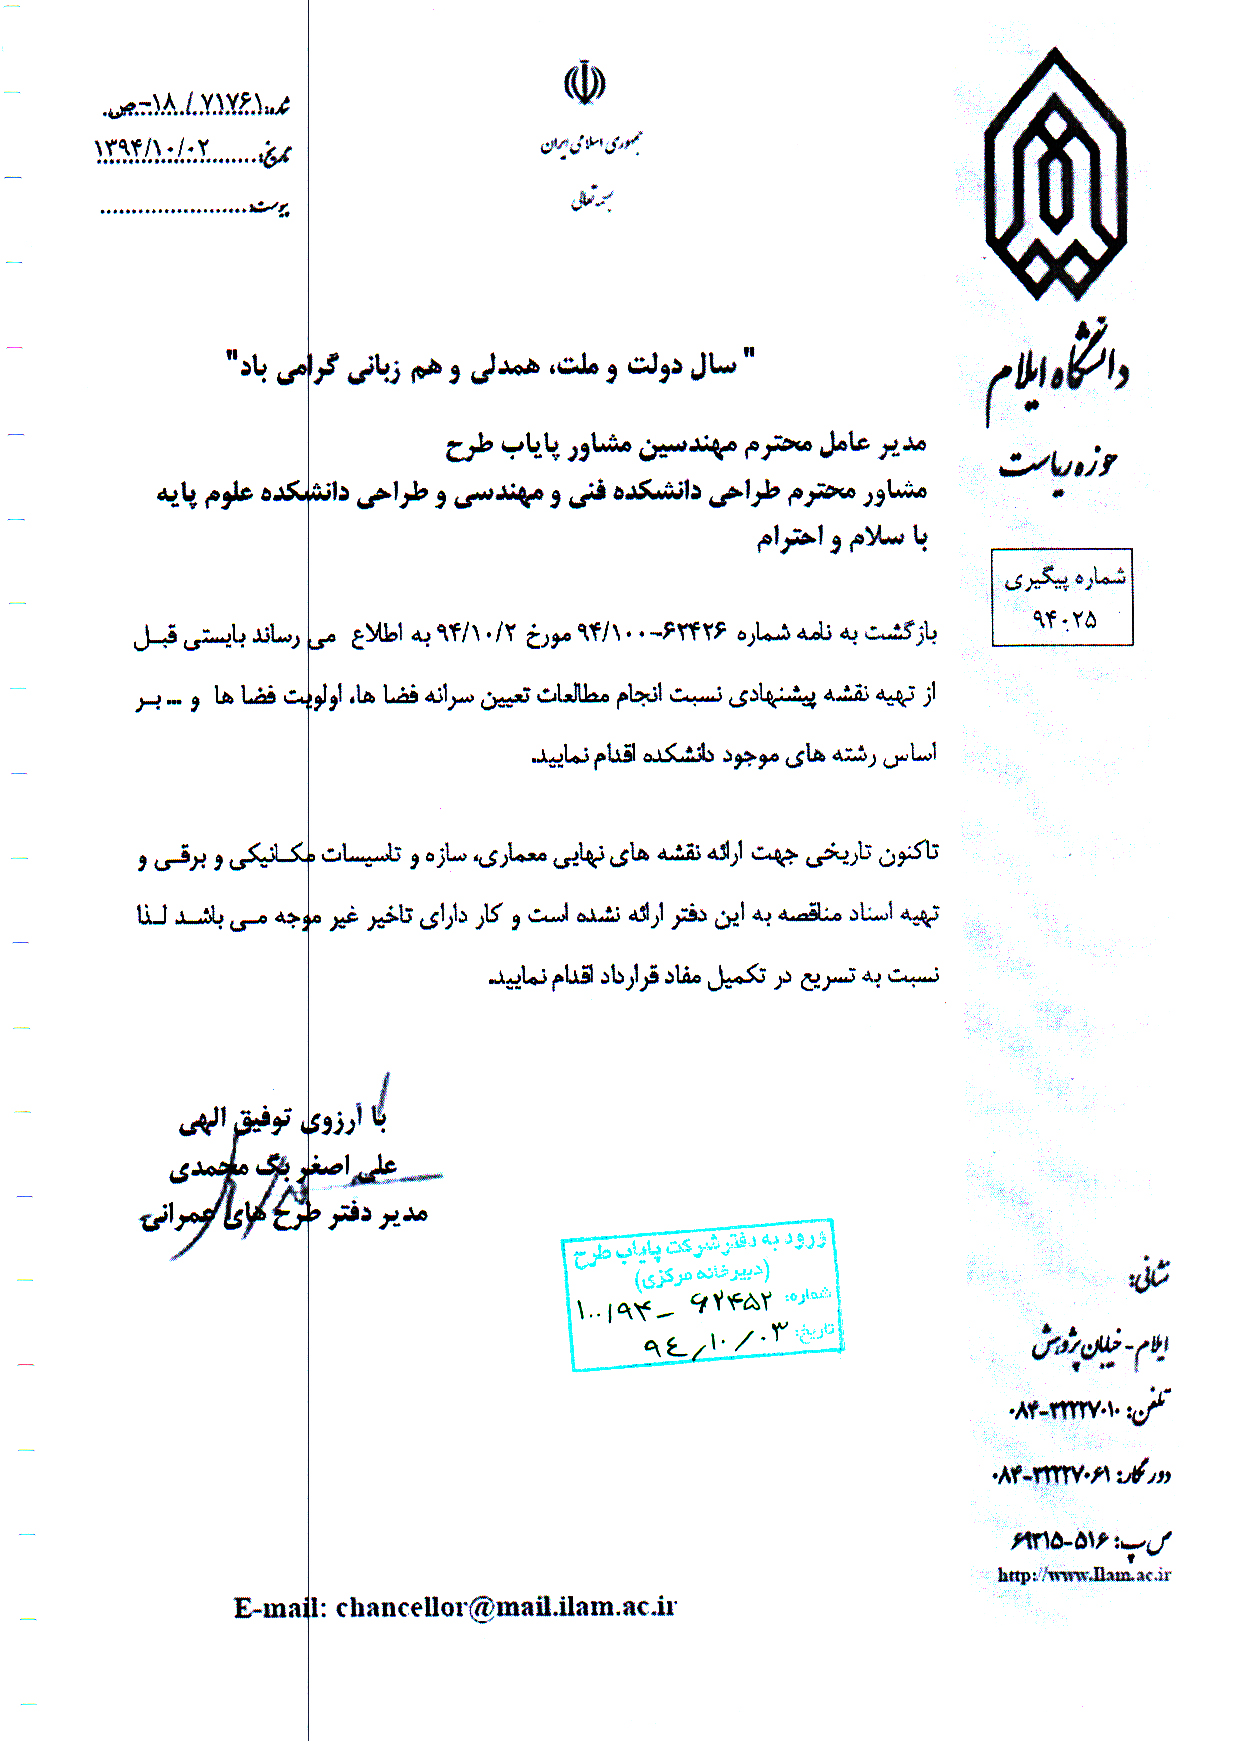 جمهوری اسلامی ایران
بسمه تعالی
شماره: ۷۱۷۶۱/ ۱۸-ص.
تاریخ: ۱۳۹۴/۱۰/۰۲
پیوست:
دانشگاه ایلام
حوزه ریاست
شماره پیگیری
۹۴۰۲۵
" سال دولت و ملت، همدلی و هم زبانی گرامی باد"
مدیر عامل محترم مهندسین مشاور پایاب طرح
مشاور محترم طراحی دانشکده فنی و مهندسی و طراحی دانشکده علوم پایه
با سلام و احترام
بازگشت به نامه شماره ۶۲۴۲۶-۹۴/۱۰۰ مورخ ۹۴/۱۰/۲ به اطلاع می رساند بایستی قبل
از تهیه نقشه پیشنهادی نسبت انجام مطالعات تعیین سرانه فضا ها، اولویت فضا ها و ... بر
اساس رشته های موجود دانشکده اقدام نمایید.
تاکنون تاریخی جهت ارائه نقشه های نهایی معماری، سازه و تاسیسات مکانیکی و برقی و
تهیه اسناد مناقصه به این دفتر ارائه نشده است و کار دارای تاخیر غیر موجه می باشد لذا
نسبت به تسریع در تکمیل مفاد قرارداد اقدام نمایید.
با آرزوی توفیق الهی
علی اصغر بگ محمدی
مدیر دفتر طرح های عمرانی
ورود به دفتر شرکت پایاب طرح
(دبیرخانه مرکزی)
شماره: ۱۰۰/۹۴ - ۶۲۴۵۲
تاریخ: ۹۴/۱۰/۰۳
نشانی:
ایلام - خیابان پژوهش
تلفن: ۰۸۴-۳۲۲۲۷۰۱۰
دورنگار: ۰۸۴-۳۲۲۲۷۰۶۱
ص پ: ۵۱۶-۶۹۳۱۵
http://www.Ilam.ac.ir
E-mail: chancellor@mail.ilam.ac.ir